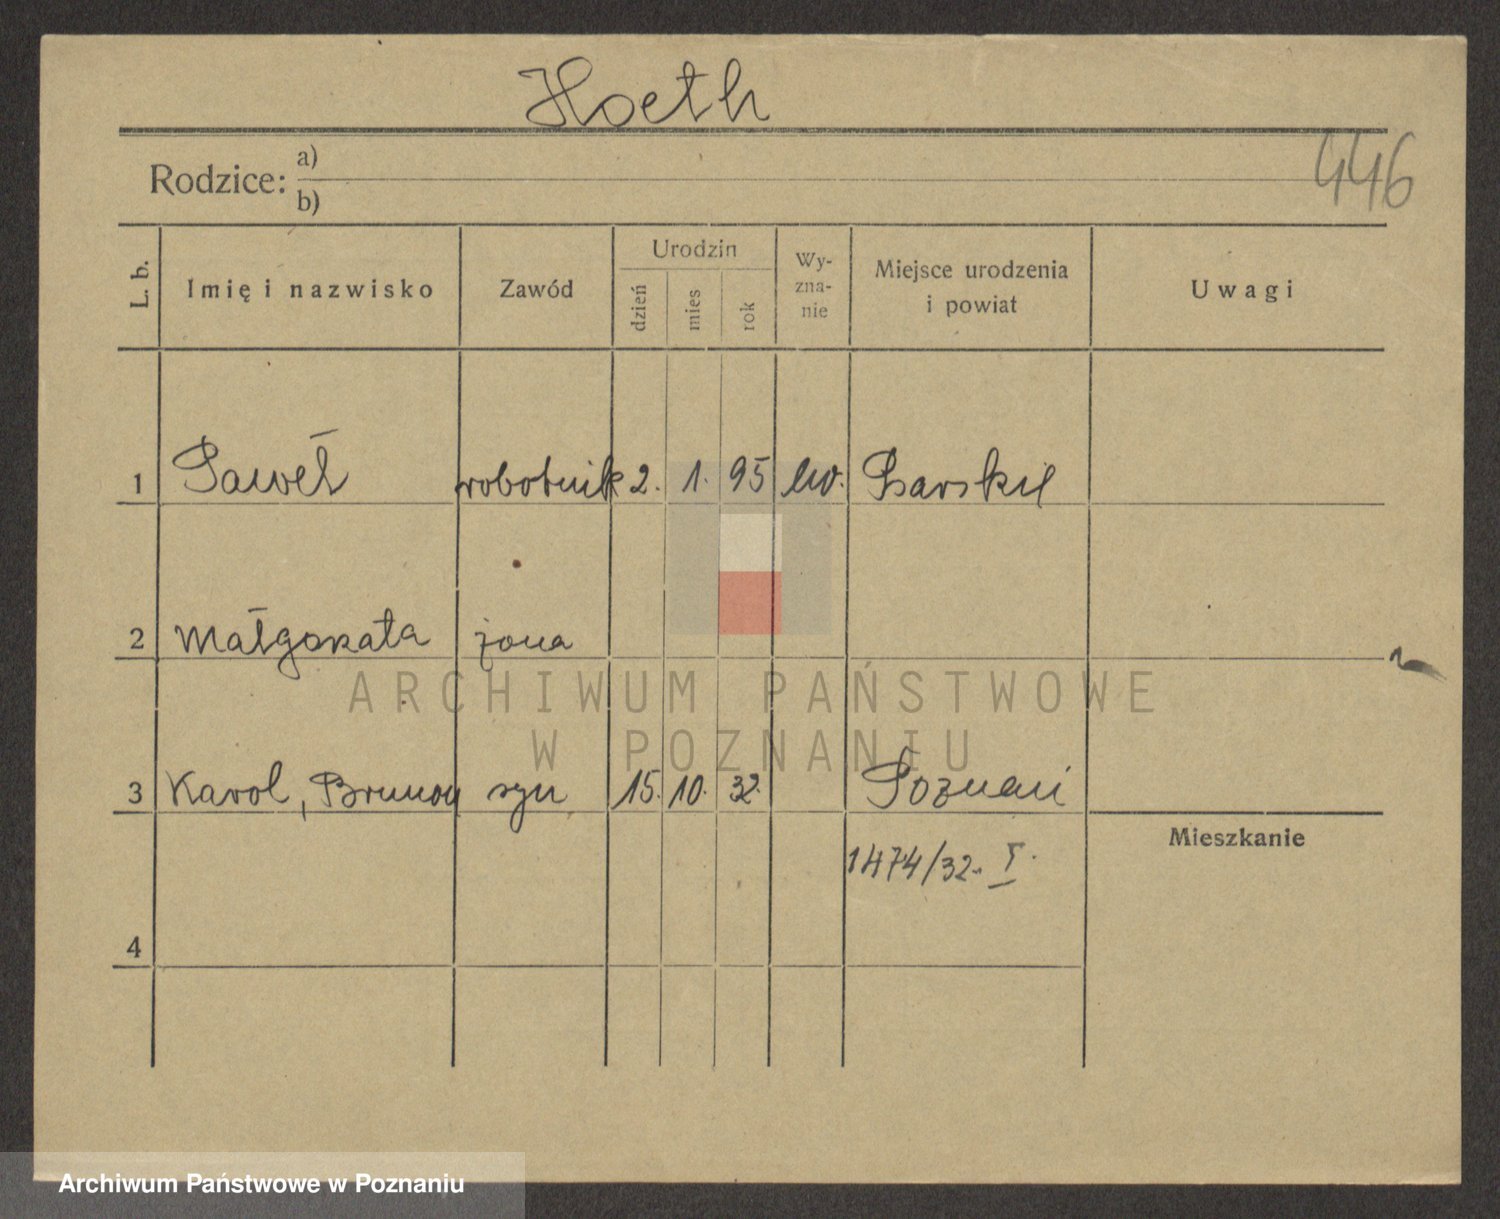 Hoeth
446
Rodzice: a)
b)
L. b. Imię i nazwisko Zawód Urodzin dzień mies rok Wy-zna-nie Miejsce urodzenia i powiat Uwagi
1 Paweł robotnik 2. 1. 95 ew. Psarskie
2 Małgorzata żona
ARCHIWUM PAŃSTWOWE
W POZNANIU
3 Karol, Brunon syn 15. 10. 32. Poznań
Mieszkanie
1474/32. I.
4
Archiwum Państwowe w Poznaniu